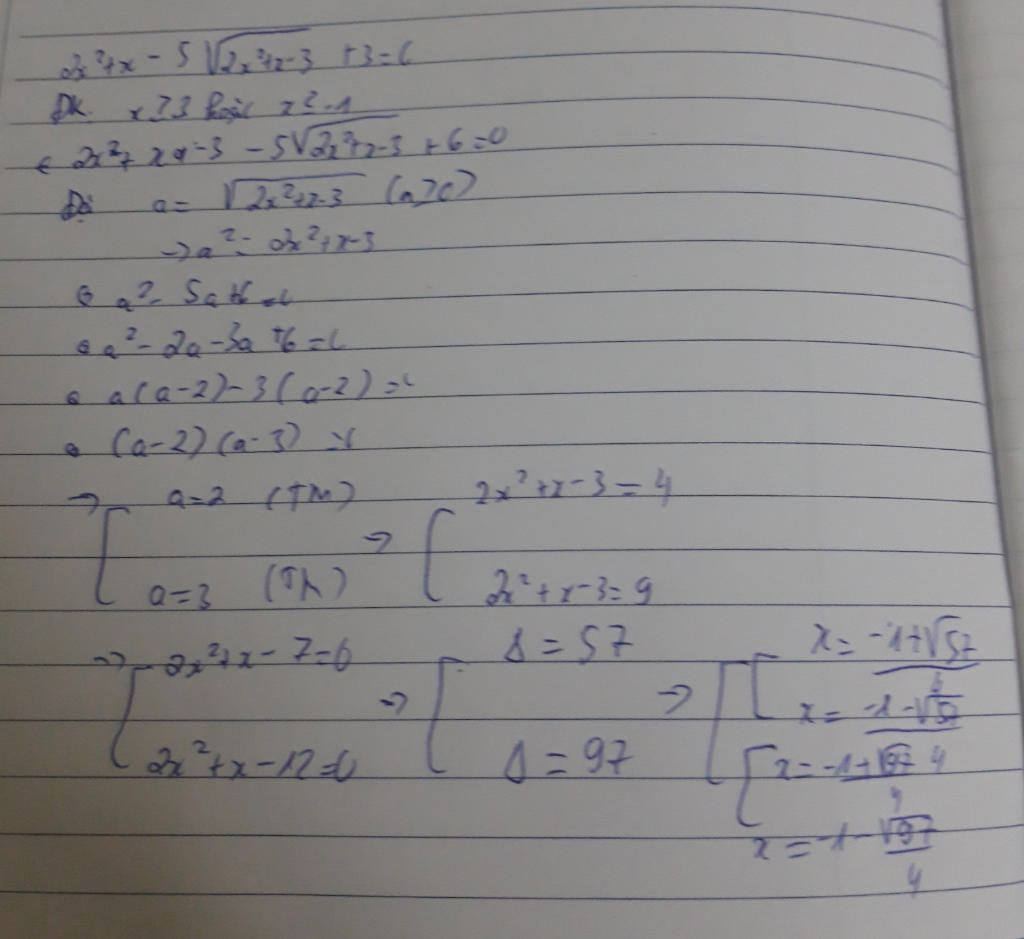 2x²+x - 5√(2x²+x-3) +3=0
ĐK. x≥3 hoặc x≤-1
2x²+ x -3 - 5√(2x²+x-3) + 6=0
Đặt a= √(2x²+x-3) (a≥0)
→a²= 2x²+x-3
a²- 5a+6=0
a²- 2a-3a +6=0
a(a-2)-3(a-2)=0
(a-2)(a-3)=0
→ [ a=2 (TM) → [ 2x²+x-3=4
a=3 (TM) 2x²+x-3=9
→ [ 2x²+x-7=0 → [ Δ=57 → [ x= (-1+√57)/4
x= (-1-√57)/4
2x²+x-12=0 Δ=97 x= (-1+√97)/4
x= (-1-√97)/4